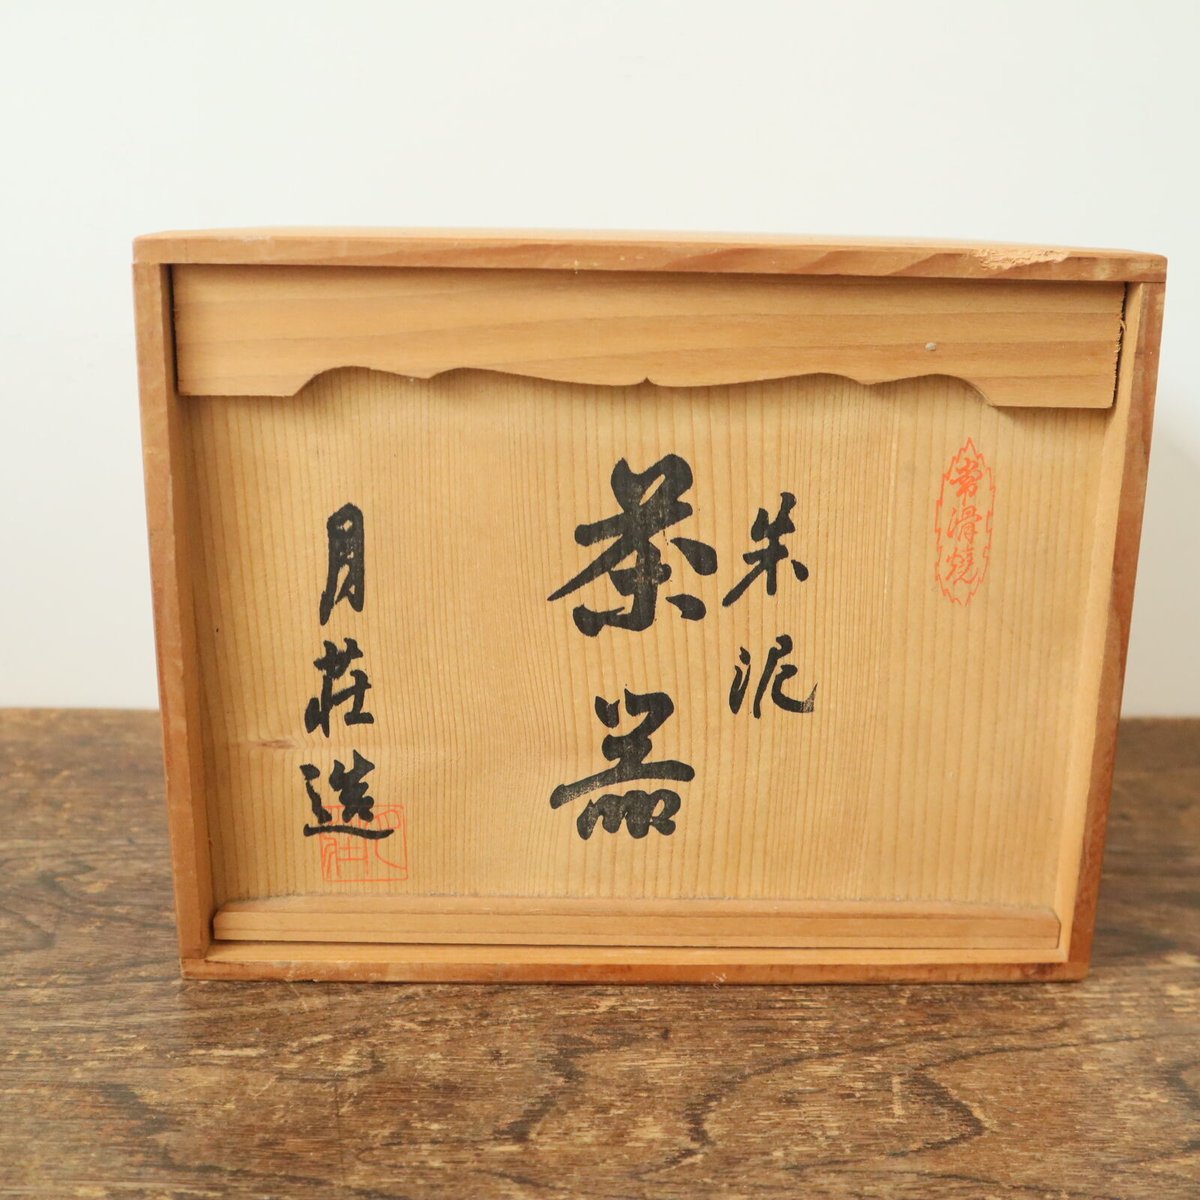 常滑燒
朱泥
茶器
月荘造